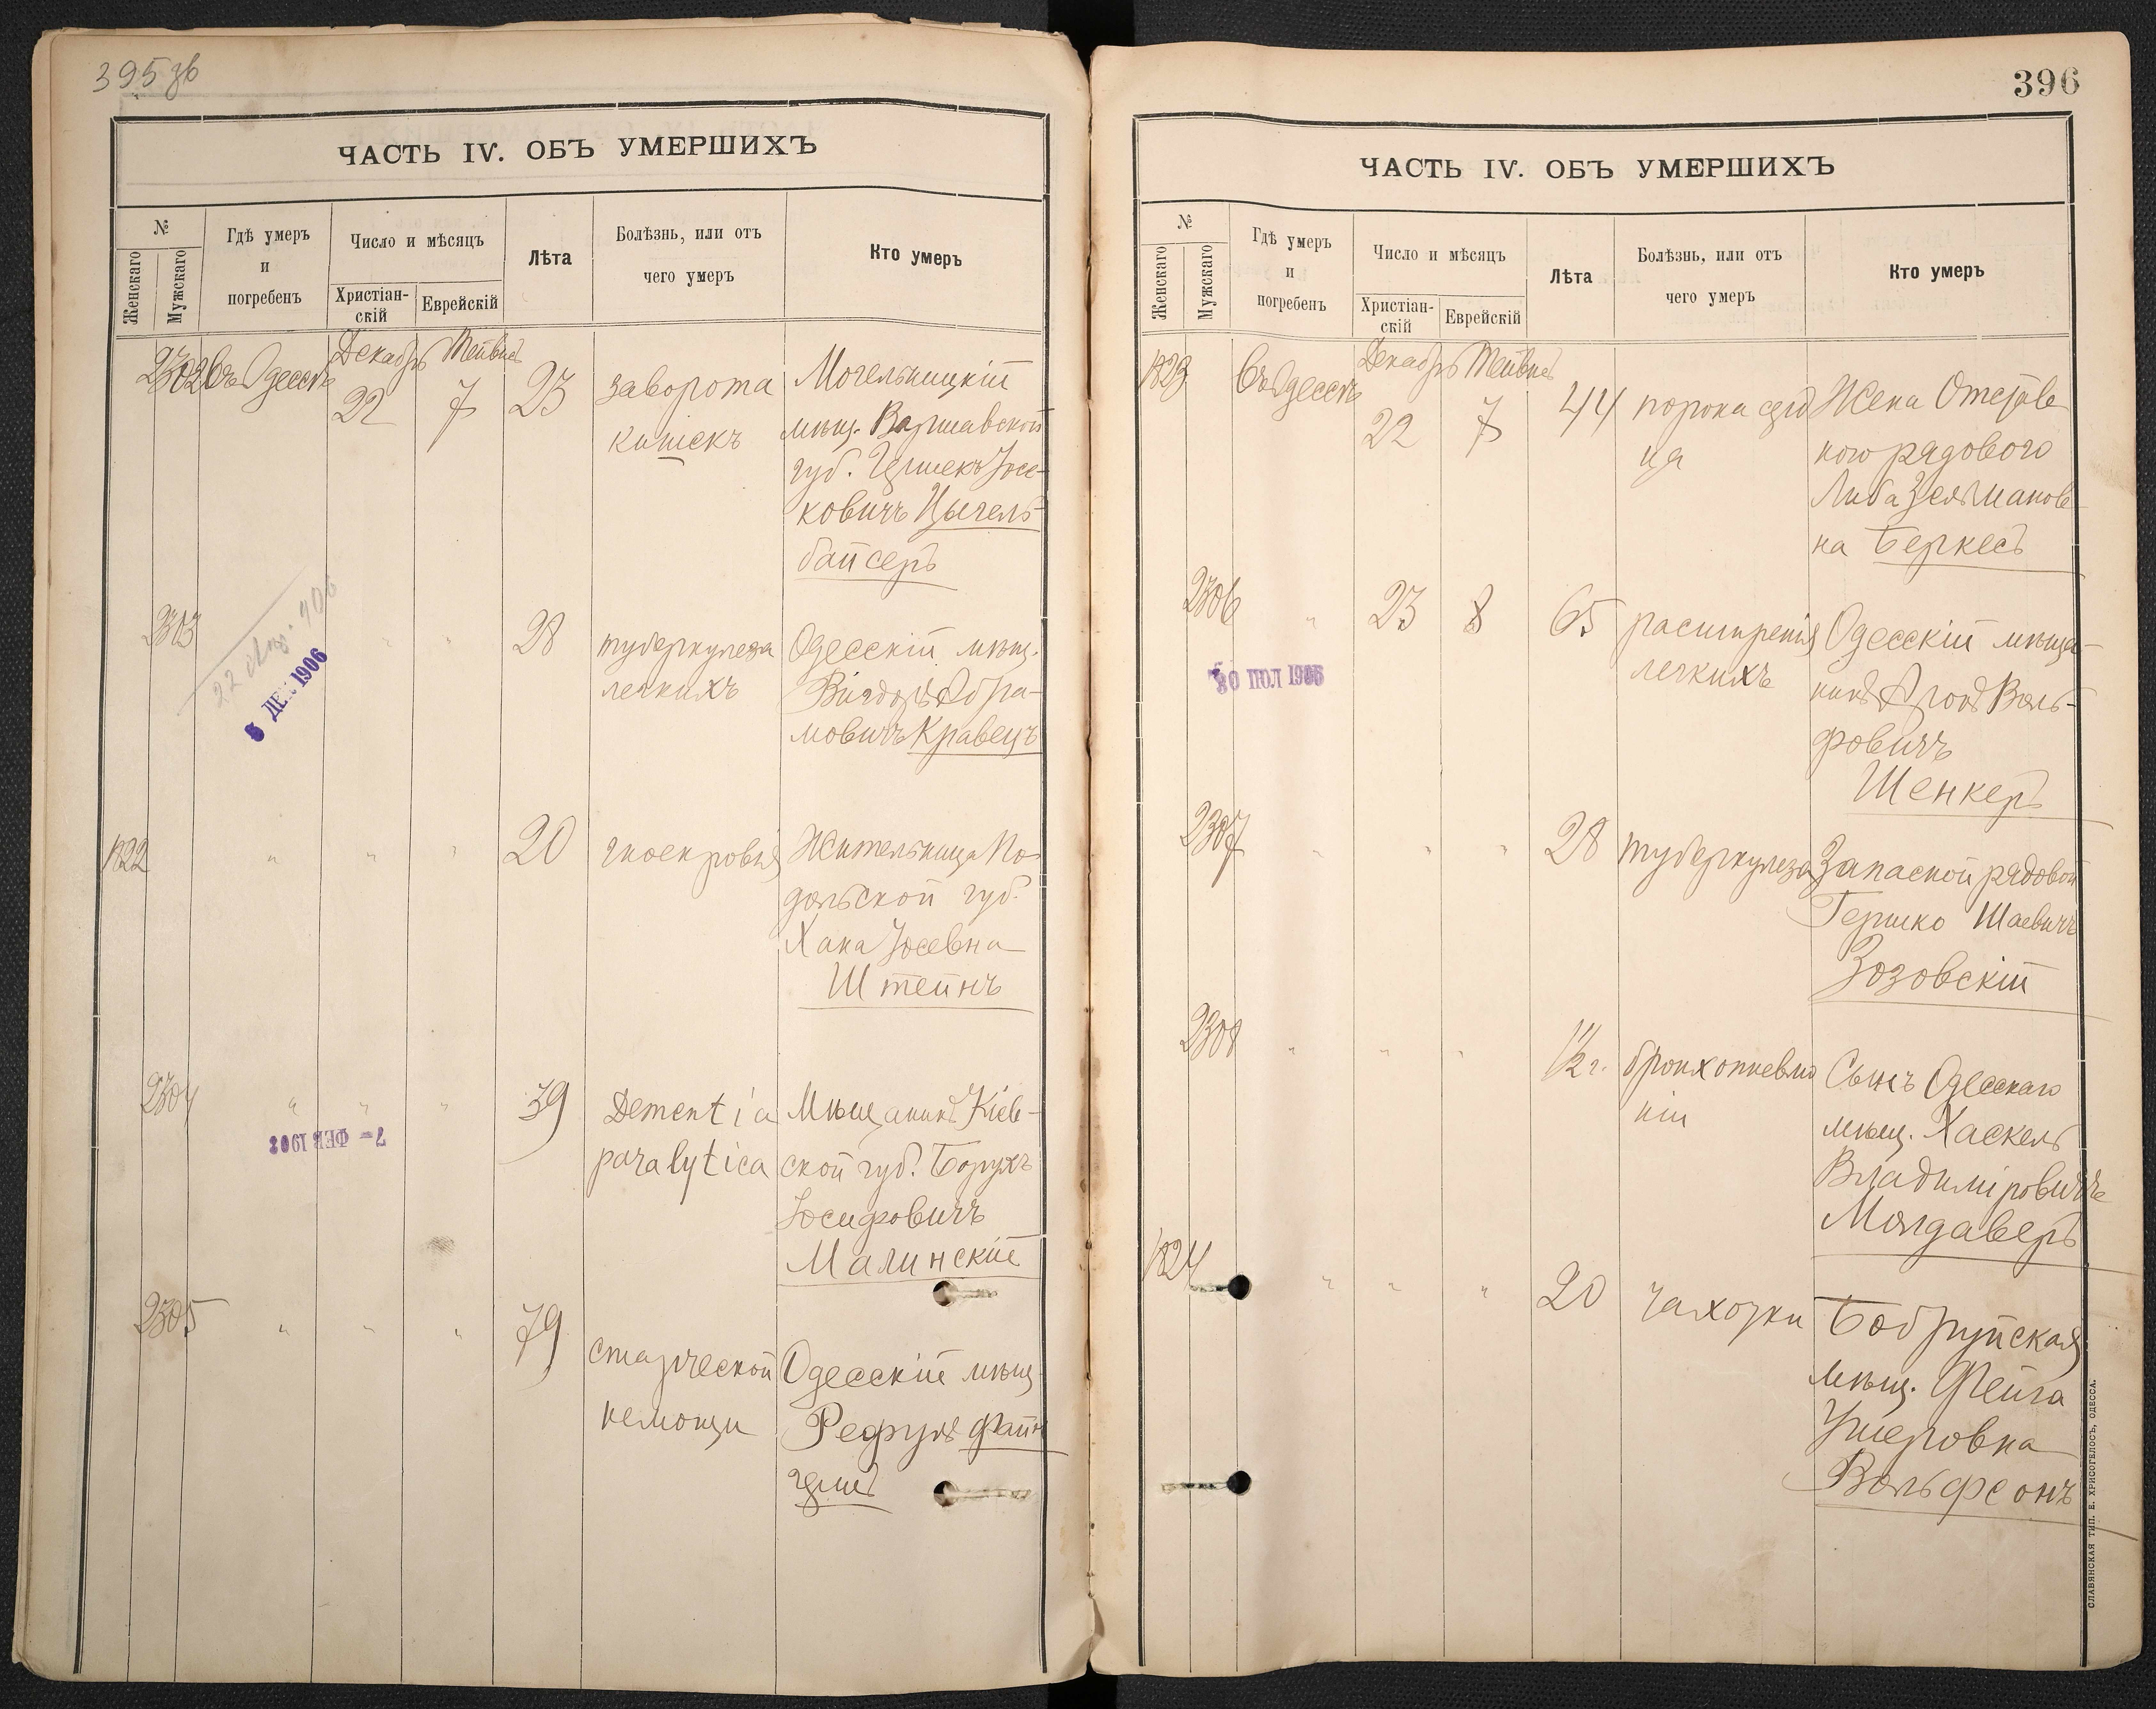 395 зв
ЧАСТЬ IV. ОБЪ УМЕРШИХЪ
№
Женскаго
Мужскаго
Гдѣ умеръ
и
погребенъ
Число и мѣсяцъ
Христіан-
скій
Еврейскій
Лѣта
Болѣзнь, или отъ
чего умеръ
Кто умеръ
2302
въ Одессѣ
Декабрь
22
Тейвисъ
7
23
заворота
кишекъ
Могельницкій
мѣщ. Варшавской
губ. Гершекъ Іосе-
ковичъ Цыгель-
байсеръ
2303
" "
28
туберкулеза
легкихъ
Одесскій мѣщ.
Вигдоръ Абра-
мовичъ Кравецъ
906
5 ДЕК 1906
1822
" " "
20
гноекровія
Жительница По-
дольской губ.
Хана Іосевна
Штейнъ
2304
" " "
39
Dementia
paralytica
Мѣщанинъ Кіев-
ской губ. Борухъ
Іосифовичъ
Малинскій
7- ФЕВ 1908
2305
" " "
79
старческой
немощи
Одесскій мѣщ.
Рефулъ Файн-
герш
396
ЧАСТЬ IV. ОБЪ УМЕРШИХЪ
№
Женскаго
Мужскаго
Гдѣ умеръ
и
погребенъ
Число и мѣсяцъ
Христіан-
скій
Еврейскій
Лѣта
Болѣзнь, или отъ
чего умеръ
Кто умеръ
1823
Въ Одессѣ
Декабрь
22
Тейвисъ
7
44
порока серд
ца
Жена Отстав
ного рядового
Либа Зельманов-
на Беркесъ
2306
"
23
8
65
расширенія
легкихъ
Одесскій мѣща-
нинъ Аронъ Воль-
фовичъ
Шенкеръ
ІЮЛ
2307
" " "
28
туберкулеза
Запасной рядовой
Гершко Шаевичъ
Зозовскій
2308
" " "
1½ г.
бронхопневмо
ніи
Сынъ Одесскаго
мѣщ. Хаскель
Владиміровичъ
Молдаверъ
1824
" " "
20
чахотки
Бобруйская
мѣщ. Фейга
Ушеровна
Вольфсонъ
СЛАВЯНСКАЯ ТИП. Е. ХРИСОГЕЛОСЪ, ОДЕССА.